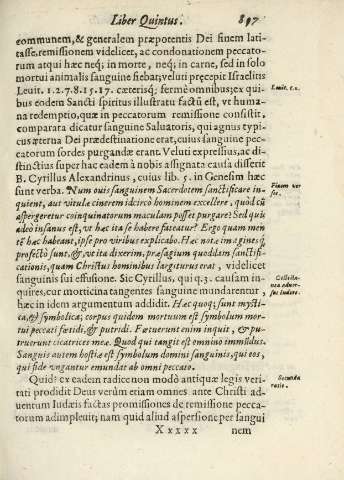 Liber Quintus. 897
communem, & generalem præpotentis Dei finem lati-
tasse, remissionem videlicet, ac condonationem peccato-
rum atqui hæc neq; in morte, neq; in carne, sed in solo
mortui animalis sanguine fiebat; veluti pręcepit Israelitis
Leuit. 1.2.7.8.15.17. cæterisq; fermè omnibus; ex qui-
Leuit. c.2.
bus eodem Sancti spiritus illustratu factũ est, vt huma-
na redemptio, quæ in peccatorum remissione consistit,
comparata dicatur sanguine Saluatoris, qui agnus typi-
cus æterna Dei prædestinatione erat, cuius sanguine pec-
catorum sordes purgandæ erant. Veluti expressius, ac di-
stinctius super hac eadem à nobis assignata causa disserit
B. Cyrillus Alexandrinus, cuius lib. 5. in Genesim hæc
sunt verba. Num ouis sanguinem Sacerdotem sanctificare in-
quient, aut vitulæ cinerem idcircò hominem excellere, quòd cũ
aspergeretur coinquinatorum maculam posset purgare? Sed quis
adeò insanus est, vt hæc ita se habere fateatur? Ergo quam men
tẽ hæc habeant, ipse pro viribus explicabo. Hæc notæ imagines q́;
profectò sunt, &, vt ita dixerim, præsagium quoddam sanctifi-
cationis, quam Christus hominibus largiturus erat, videlicet
sanguinis sui effusione. Sic Cyrillus, qui q. 3. causam in-
quires, cur morticina tangentes sanguine mundarentur,
hæc in idem argumentum addidit. Hæc quoq; sunt mysti-
ca, & symbolica; corpus quidem mortuum est symbolum mor-
tui peccati fœtidi, & putridi. Fœtuerunt enim inquit, & pu-
truerunt cicatrices meæ. Quod qui tangit est omnino immũdus.
Sanguis autem hostiæ est symbolum domini sanguinis, qui eos,
qui fide vngantur emundat ab omni peccato.
Quid? ex eadem radice non modò antiquæ legis veri-
Secunda
ratio.
tati prodidit Deus verùm etiam omnes ante Christi ad-
uentum Iudæis factas promissiones de remissione pecca-
torum adimpleuit; nam quid aliud aspersione per sangui
X x x x x nem